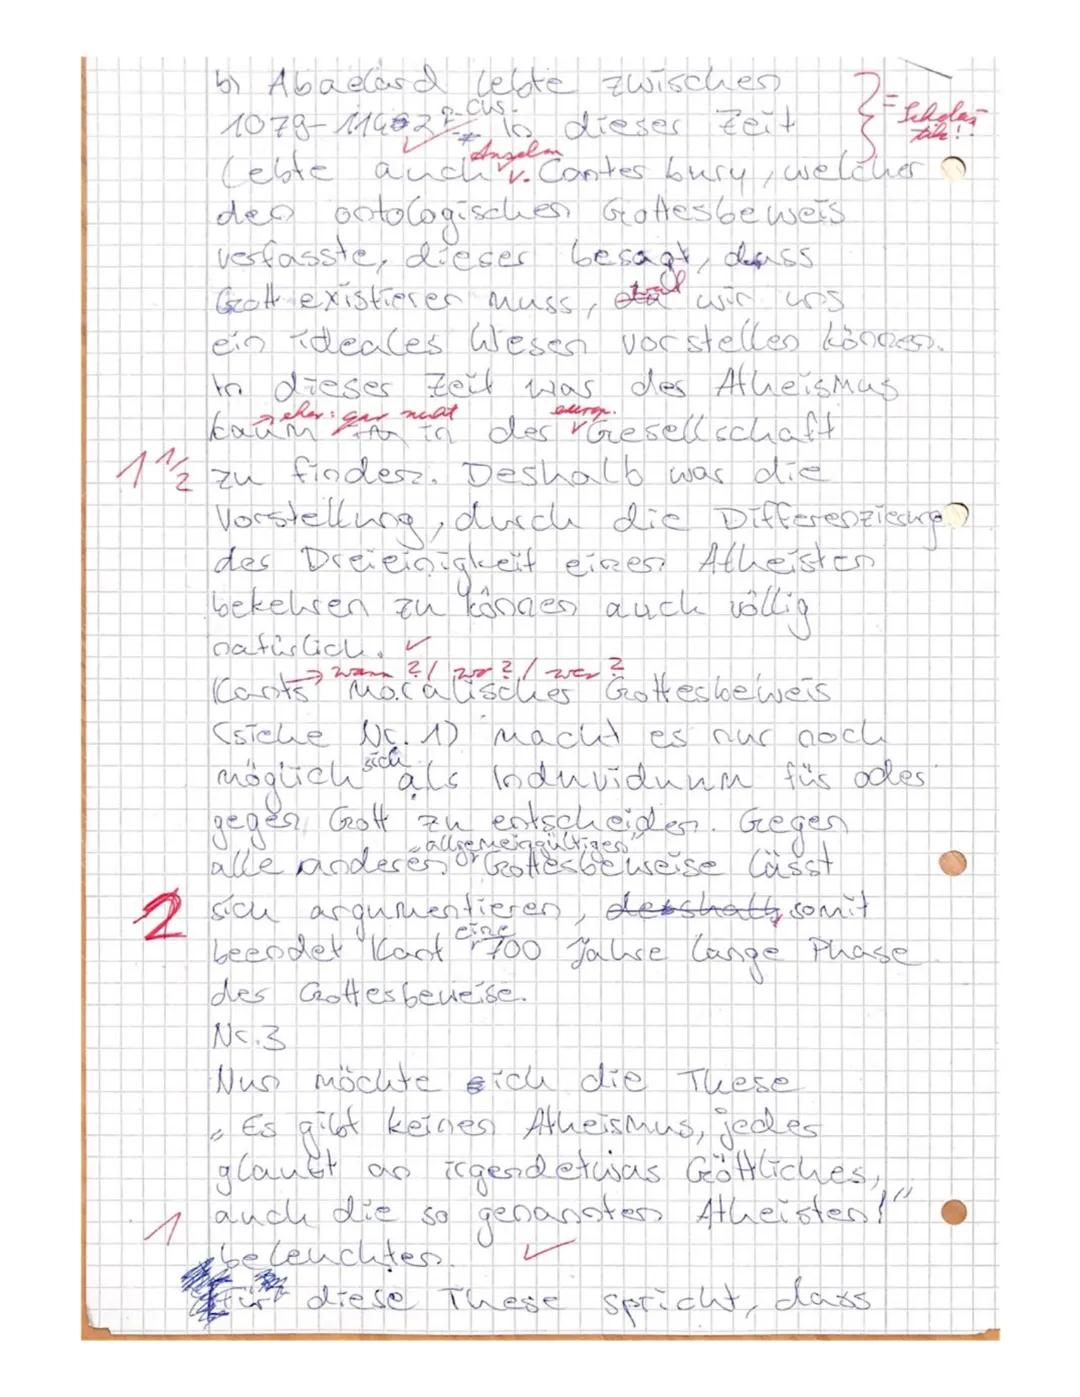 b) Abaelard lebte zwischen
1079-1142 n. Chr. In dieser Zeit
= Scholas-
tik!
lebte auch Anselm v. Canterbury, welcher
den ontologischen Gottesbeweis
verfasste, dieser besagt, dass
Gott existieren muss, weil wir uns
ein ideales Wesen vorstellen können.
In dieser Zeit war der Atheismus
→ eher: gar nicht
europ.
kaum in der Gesellschaft
1 1/2
zu finden. Deshalb war die
Vorstellung, durch die Differenzierung
der Dreieinigkeit einen Atheisten
bekehren zu können auch völlig
natürlich. ✓
→ wann?/ wo?/ wer?
Kants moralischer Gottesbeweis
(siehe Nr. 1) macht es nur noch
möglich sich als Induviduum für oder
gegen Gott zu entscheiden. Gegen
alle anderen "allgemeingültigen" Gottesbeweise lässt
2
sich argumentieren, deshalb somit
beendet Kant eine 700 Jahre lange Phase
der Gottesbeweise.
Nr. 3
Nun möchte ich die These
„Es gibt keinen Atheismus, jeder
glaubt an irgendetwas Göttliches,
1
auch die so genannten Atheisten!"
beleuchten. ✓
Für diese These spricht, dass